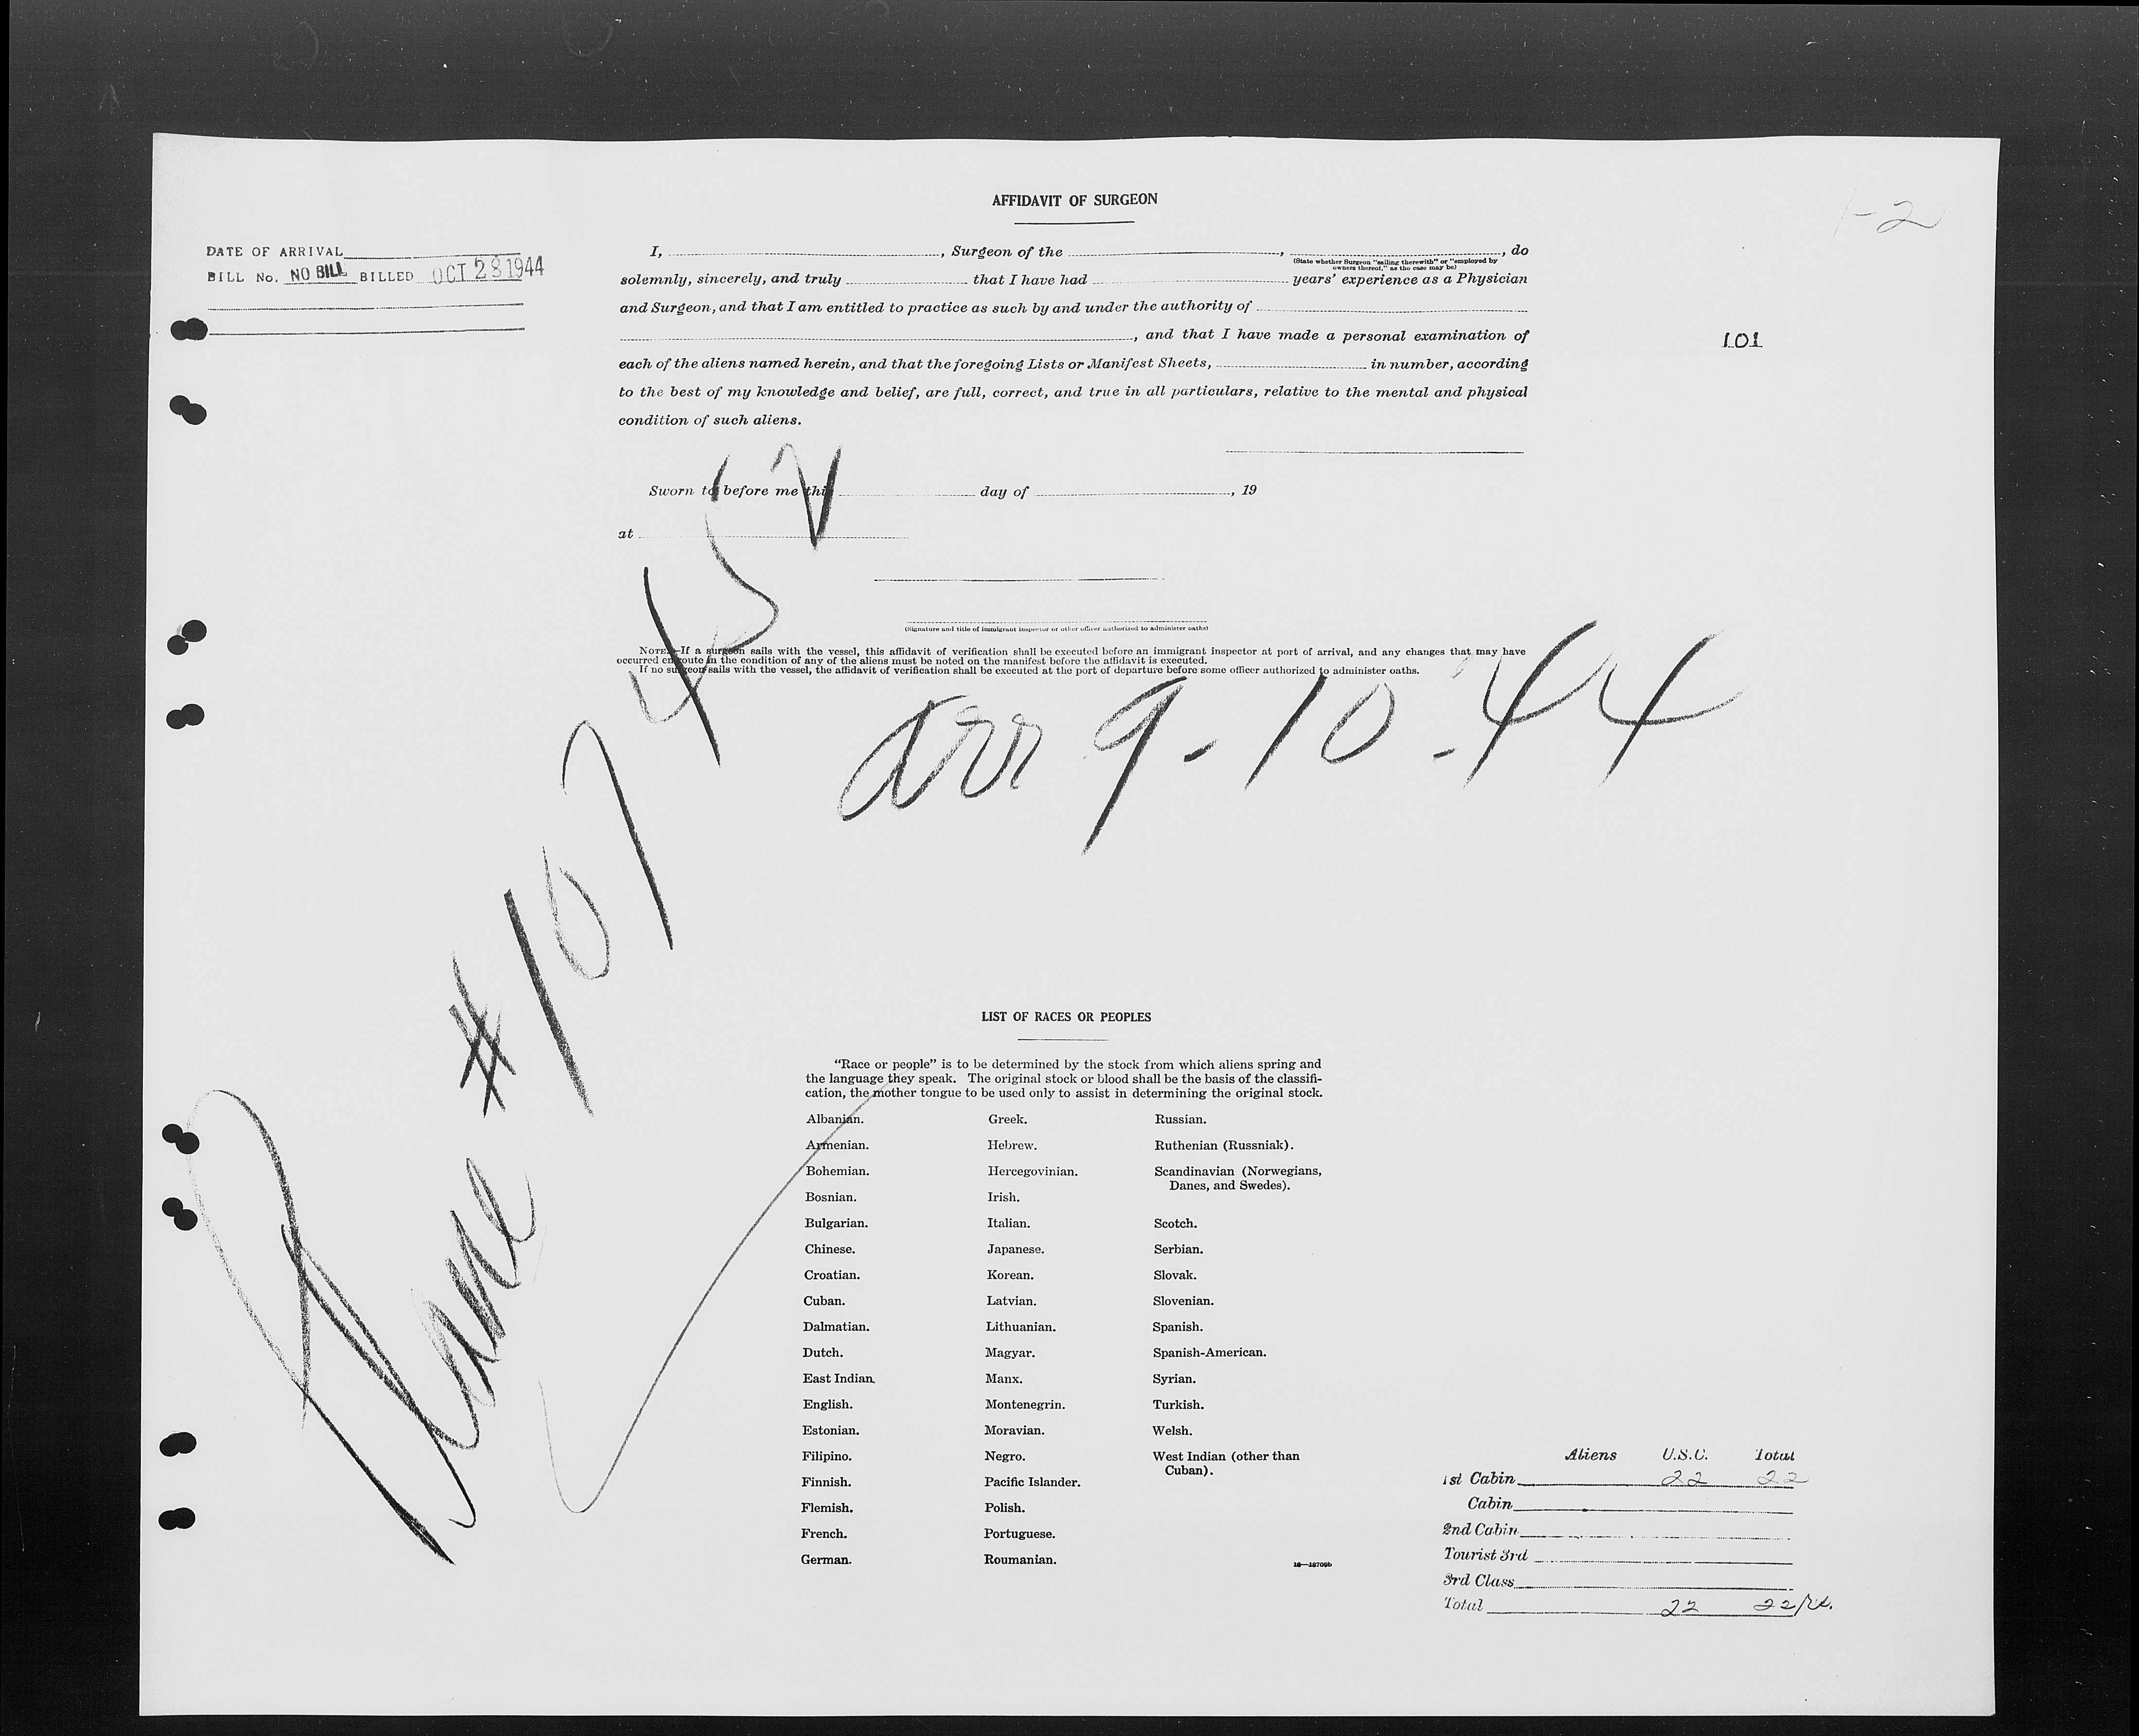 AFFIDAVIT OF SURGEON
1-2
DATE OF ARRIVAL
BILL No. NO BILL BILLED OCT 28 1944
I, , Surgeon of the , , do
(State whether Surgeon "sailing therewith" or "employed by
owners thereof," as the case may be)
solemnly, sincerely, and truly that I have had years' experience as a Physician
and Surgeon, and that I am entitled to practice as such by and under the authority of
, and that I have made a personal examination of
101
each of the aliens named herein, and that the foregoing Lists or Manifest Sheets, in number, according
to the best of my knowledge and belief, are full, correct, and true in all particulars, relative to the mental and physical
condition of such aliens.
Sworn to before me this day of , 19
at
(Signature and title of immigrant inspector or other officer authorized to administer oaths)
NOTE.—If a surgeon sails with the vessel, this affidavit of verification shall be executed before an immigrant inspector at port of arrival, and any changes that may have
occurred en route in the condition of any of the aliens must be noted on the manifest before the affidavit is executed.
If no surgeon sails with the vessel, the affidavit of verification shall be executed at the port of departure before some officer authorized to administer oaths.
arr 9-10-44
Plane #107452
LIST OF RACES OR PEOPLES
"Race or people" is to be determined by the stock from which aliens spring and
the language they speak. The original stock or blood shall be the basis of the classifi-
cation, the mother tongue to be used only to assist in determining the original stock.
Albanian.
Armenian.
Bohemian.
Bosnian.
Bulgarian.
Chinese.
Croatian.
Cuban.
Dalmatian.
Dutch.
East Indian.
English.
Estonian.
Filipino.
Finnish.
Flemish.
French.
German.
Greek.
Hebrew.
Hercegovinian.
Irish.
Italian.
Japanese.
Korean.
Latvian.
Lithuanian.
Magyar.
Manx.
Montenegrin.
Moravian.
Negro.
Pacific Islander.
Polish.
Portuguese.
Roumanian.
Russian.
Ruthenian (Russniak).
Scandinavian (Norwegians,
Danes, and Swedes).
Scotch.
Serbian.
Slovak.
Slovenian.
Spanish.
Spanish-American.
Syrian.
Turkish.
Welsh.
West Indian (other than
Cuban).
16—18709b
Aliens U.S.C. Total
1st Cabin 22 22
Cabin
2nd Cabin
Tourist 3rd
3rd Class
Total 22 22